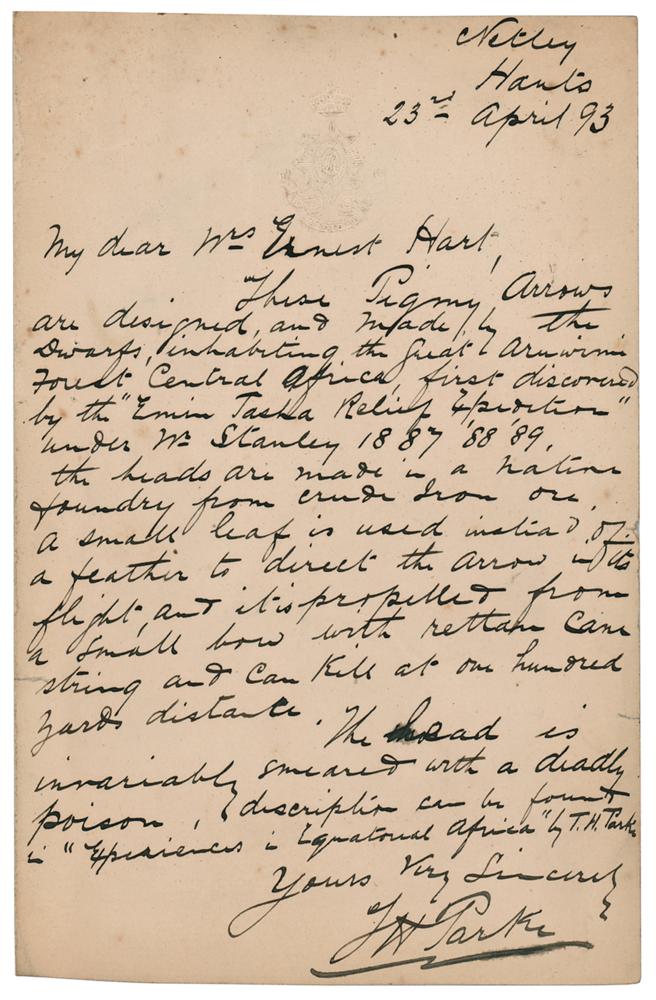 Netley
Hants
23rd April 93
My dear Mrs Ernest Hart,
These Pigmy Arrows
are designed, and made, by the
Dwarfs, inhabiting the great Aruwimi
Forest Central Africa, first discovered
by the "Emin Pasha Relief Expedition"
under Mr Stanley 1887 '88 '89.
the heads are made in a native
foundry from crude Iron ore,
a small leaf is used instead of
a feather to direct the arrow in its
flight, and it is propelled from
a small bow with rattan cane
string and can kill at one hundred
yards distance. The head is
invariably smeared with a deadly
poison, description can be found
in "Experiences in Equatorial Africa" by T. H. Parke
Yours Very Sincerely
T H Parke